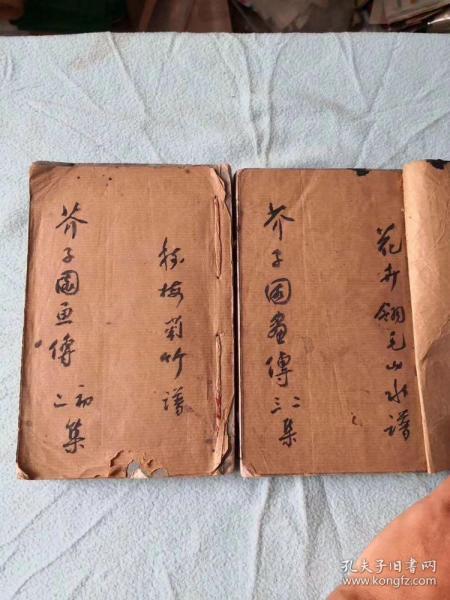 芥子園画傳 二初集
梅菊竹譜
芥子园畫傳 三二集
花卉翎毛山水譜
孔夫子旧书网
www.kongfz.com